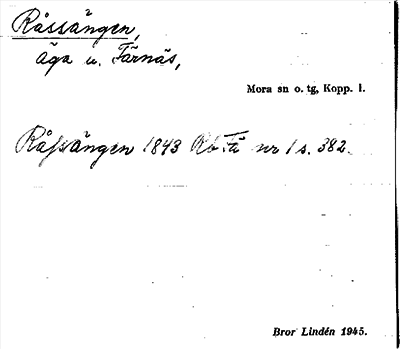 Råssängen,
äga u. Färnäs,
Mora sn o. tg, Kopp. l.
Råssängen 1843 Rb Fä nr 1 s. 382.
Bror Lindén 1945.